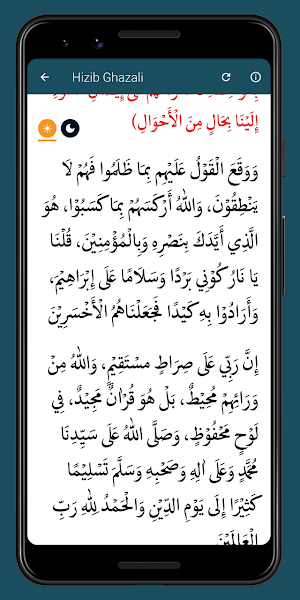 Hizib Ghazali
إِلَيْنَا بِحَالٍ مِنَ الْأَحْوَالِ)
وَوَقَعَ الْقَوْلُ عَلَيْهِمْ بِمَا ظَلَمُوا فَهُمْ لَا
يَنْطِقُوْنَ، وَاللهُ أَرْكَسَهُمْ بِمَا كَسَبُوْا، هُوَ
الَّذِي أَيَّدَكَ بِنَصْرِهِ وَبِالْمُؤْمِنِيْنَ، قُلْنَا
يَا نَارُ كُوْنِي بَرْدًا وَسَلَامًا عَلَى إِبْرَاهِيْمَ،
وَأَرَادُوْا بِهِ كَيْدًا فَجَعَلْنَاهُمُ الْأَخْسَرِيْنَ
إِنَّ رَبِّي عَلَى صِرَاطٍ مسْتَقِيْمٍ، وَاللهُ مِنْ
وَرَائِهِمْ مُحِيْطٌ، بَلْ هُوَ قُرْاٰنٌ مَجِيْدٌ، فِي
لَوْحٍ مَحْفُوْظٍ، وَصَلَّى اللهُ عَلَى سَيِّدِنَا
مُحَمَّدٍ وَعَلَى اٰلِهِ وَصَحْبِهِ وَسَلَّمَ تَسْلِيْمًا
كَثِيْرًا إِلَى يَوْمِ الدِّيْنِ وَالْحَمْدُ لِلّٰهِ رَبِّ
الْعَالَمِيْنَ